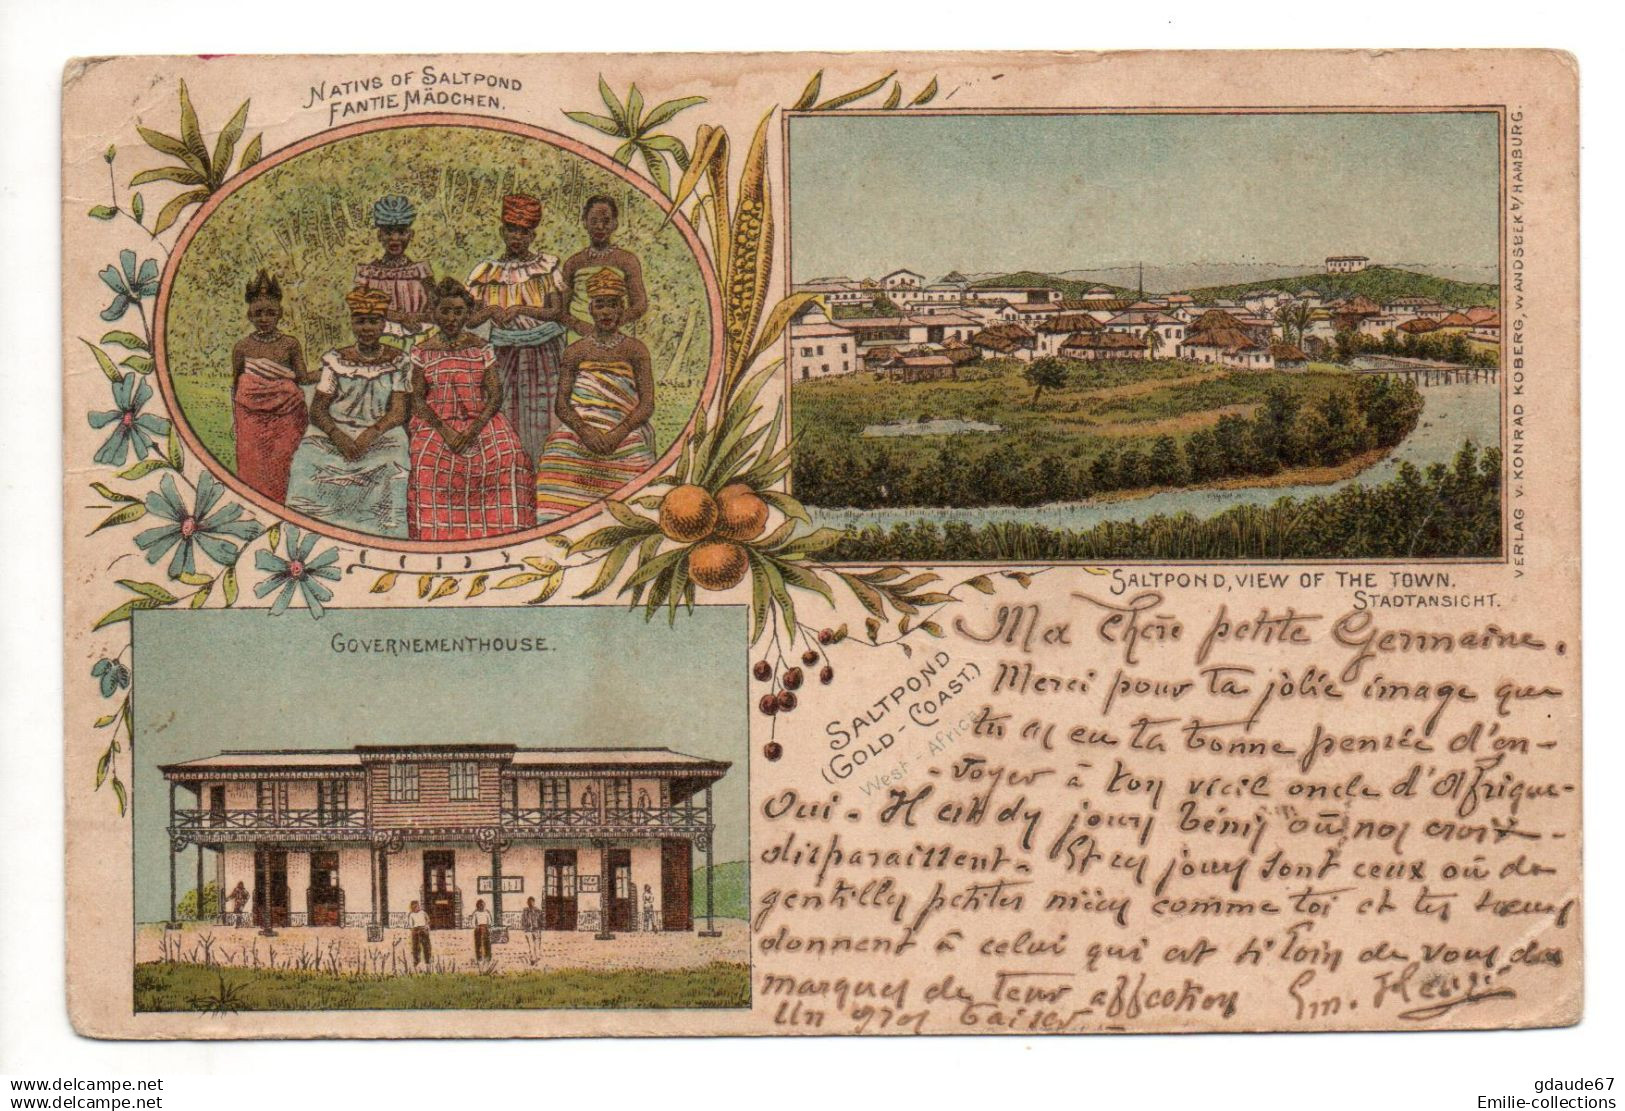 NATIVS OF SALTPOND
FANTIE MÄDCHEN.
VERLAG v. KONRAD KOBERG, WANDSBEK b/HAMBURG.
SALTPOND, VIEW OF THE TOWN.
STADTANSICHT.
GOVERNEMENTHOUSE.
SALTPOND
(GOLD-COAST.)
West-Africa
Ma chère petite Germaine.
Merci pour ta jolie image que
tu as eu ta bonne pensée d'en-
-voyer à ton vieil oncle d'Afrique-
Oui. Il est dy jours bénis où nos croix-
disparaissent. Et ces jours sont ceux où de
gentilles petites nièces comme toi et tes sœurs
donnent à celui qui est si loin de vous des
marques de leur affection
Un gros baiser.
Em.
gdaude67
Emilie-collections
www.delcampe.net
www.delcampe.net